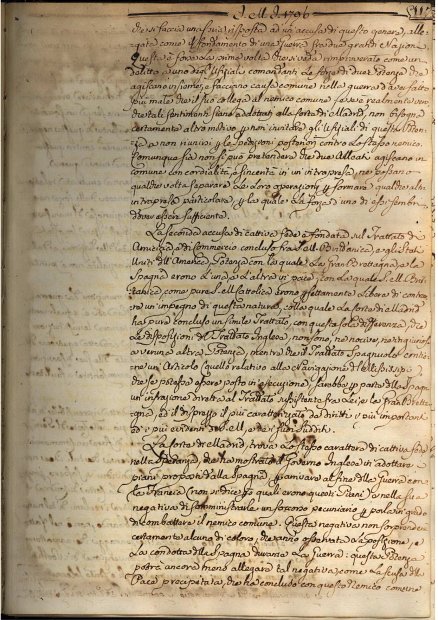 J. M. J. 1796
che si faccia una seria risposta ad un accusa di questo genere, alle=
gata come il fondamento di una Guerra fra due gran di Nazioni.
Questa è forse la prima volta che si veda rimproverato come un
delitto a uno degli Ufiziali comandanti le forze di due Potenze che
agiscano insieme, e facciano causa comune nella guerra d'aver fatto
più male che il suo collega al nemico comune. Se realmente ver
che tali sentimenti siano adottati alla Corte di Madrid, non bisogna
certamente altro motivo per non invitare gli Ufiziali di questa Poten=
za a non riunirsi per le spedizioni posteriori contro lo stesso nemico.
Comunque sia non si può pretendere che due Alleati agiscano in
comune con cordialità, e sincerità in un intrapresa, ne possano
qualche volta separare le loro operazioni per formare qualche altra
intrapresa particolare per la quale la forza uno di essi sembri
dover essere sufficiente.
La seconda accusa di cattiva fede è fondata sul Trattato di
Amicizia, e di Commercio concluso fra S. M. Britanica, e gli Stati
Uniti dell'America, Potenza con la quale la Gran Brettagna, e la
Spagna erano l'una, e l'altra in pace; con la quale S. M. Bri=
tanica, come pure S. M. Cattolica erono perfettamente libere di contrar=
re un impegno di questa natura, colla quale la Corte di Madrid
ha pure concluso un simile Trattato, con questa sola differenza, che
le disposizioni del Trattato Inglese, non sono, ne nocive, ne ingiuriose
a veruna altra Potenza, mentre che il Trattato Spagnuolo contie=
ne un Articolo (quello relativo alla Navigazione del Mississipi
che se potesse essere posto in esecuzione, sarebbe per parte della Spagna
un infrazione diretta al Trattato sussistente fra Lei, e la Gran Bretta=
gna, ed il disprezzo il più caratterizzato dei diritti i più importanti
ed i più evidenti di S. M. e dei suoi sudditi.
La Corte di Madrid, trova lo stesso carattere di cattiva fede
nella che ha mostrato il Governo Inglese in adottare i
piani proposti dalla Spagna per arrivare al fine della Guerra con
la Francia (non si dice quali erono questi Piani) e nella sua
negativa di somministrarle un soccorso pecuniario per poterli in grado
di combattere il nemico comune. Questa negativa non sorprenderà
certamente alcuno di coloro, che anno osservata la posizione, e
la condotta della Spagna durante la Guerra: questa Potenza
potrà ancora meno allegare tal negativa, come la scusa della
Pace precipitata, che ha concluso con questo Nemico comune